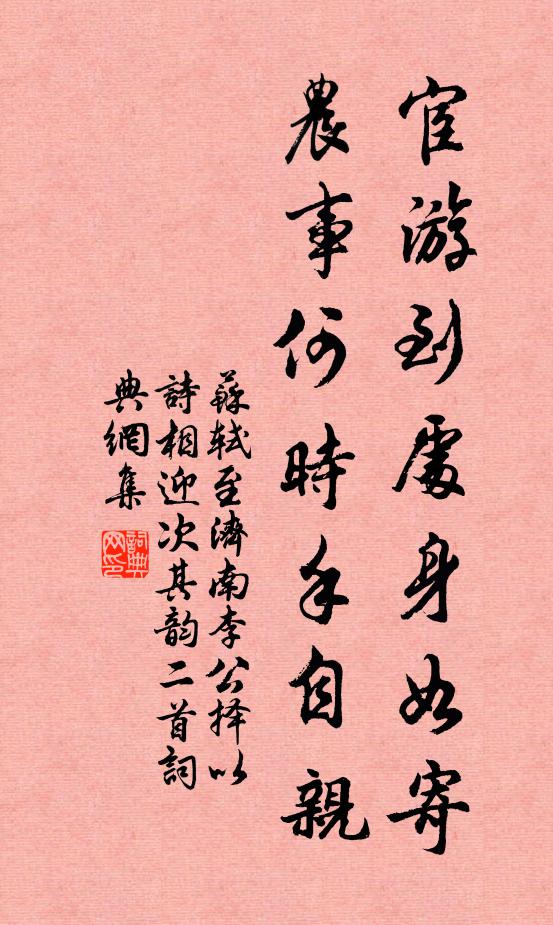 宦游到處身如寄
農事何時手自親
蘇軾至濟南李公择以
詩相迎次其韵二首詞
典網集
詞典
网印